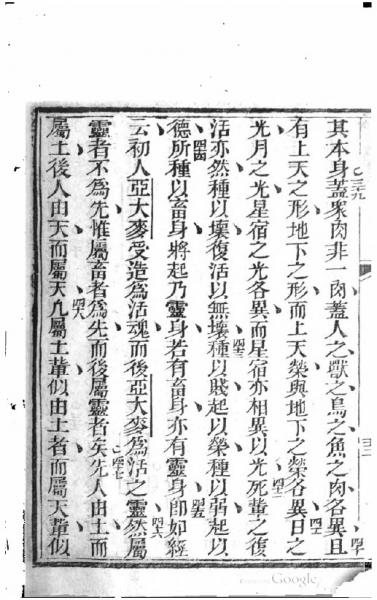 其本身蓋衆肉非一肉蓋人之獸之鳥之魚之肉各異且
有上天之形地下之形而上天榮與地下之榮各異日之
光月之光星宿之光各異而星宿亦相異以光死輩之復
活亦然種以壞復活以無壞種以賤起以榮種以弱起以
德所種以畜身將起乃靈身若有畜身亦有靈身即如經
云初人亞大麥受造爲活魂而後亞大麥爲活之靈然屬
靈者不爲先惟屬畜者爲先而後屬靈者矣先人由土而
屬土後人由天而屬天凡屬土輩似由土者而屬天輩似
Google